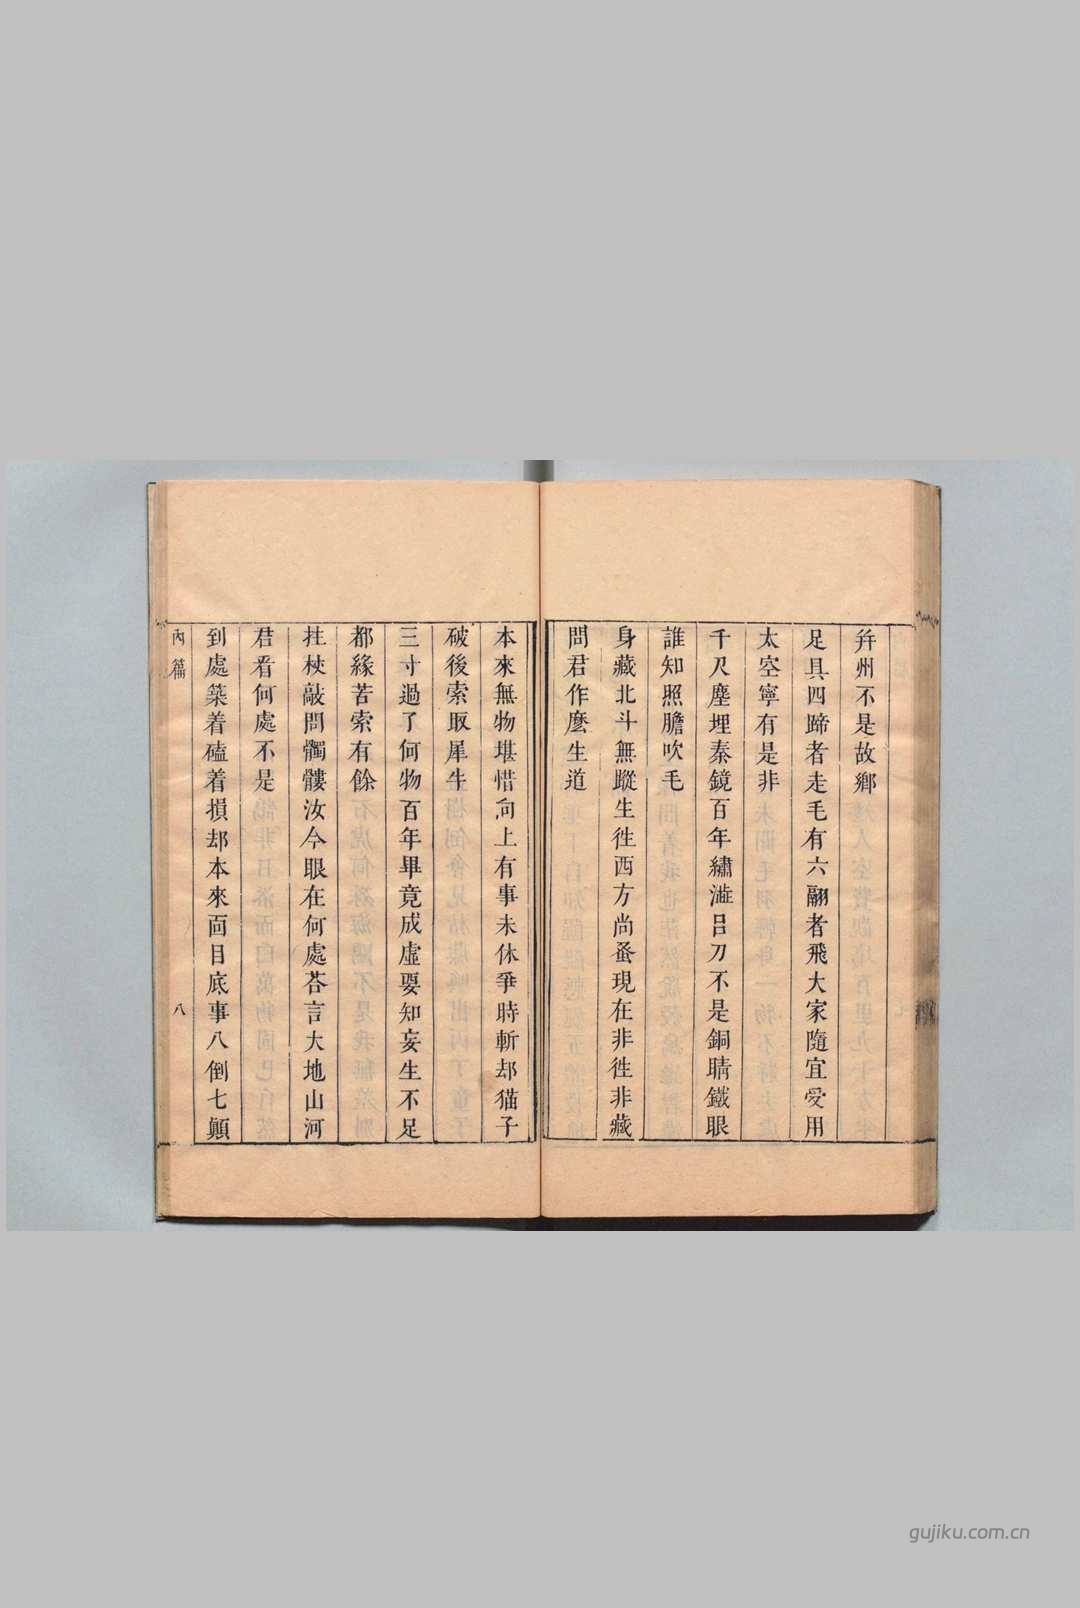 并州不是故鄉
足具四蹄者走毛有六翮者飛大家隨宜受用
太空寧有是非
千尺塵埋秦鏡百年繡澁呂刀不是銅睛鐵眼
誰知照膽吹毛
身藏北斗無蹤生徃西方尚蚤現在非徃非藏
問君作麽生道
本來無物堪惜向上有事未休爭時斬却猫子
破後索取犀牛
三寸過了何物百年畢竟成虛要知妄生不足
都緣苦索有餘
拄杖敲問髑髏汝今眼在何處荅言大地山河
君看何處不是
到處築着磕着損却本來面目底事八倒七顛
內篇
八
gujiku.com.cn